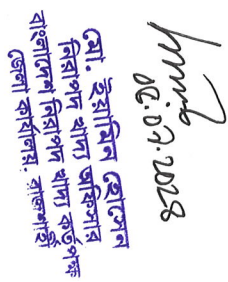 ০৫.০৭.2028
মো. ইয়ামিন হোসেন
নিরাপদ খাদ্য অফিসার
বাংলাদেশ নিরাপদ খাদ্য কর্তৃপক্ষ
জেলা কার্যালয়, রাজশাহী